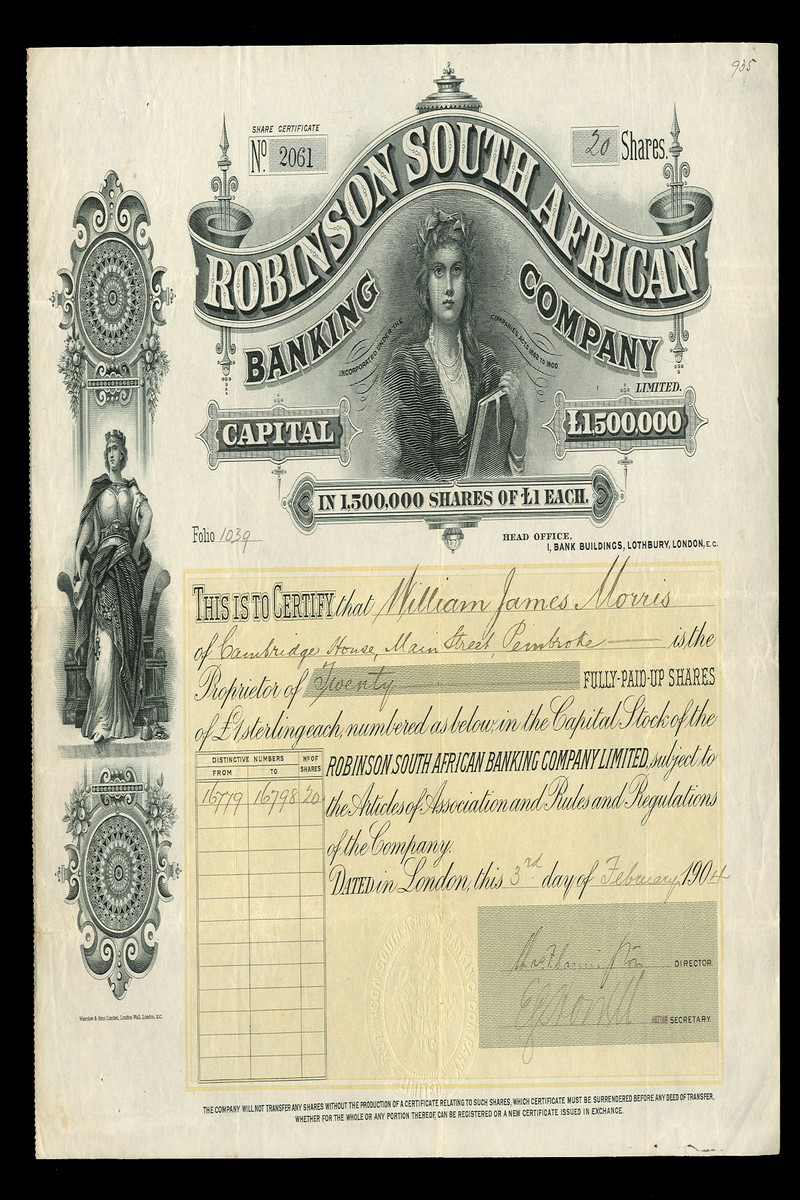 935
SHARE CERTIFICATE
No. 2061
20 Shares.
ROBINSON SOUTH AFRICAN
BANKING COMPANY
INCORPORATED UNDER THE COMPANIES ACTS 1862 TO 1900.
LIMITED.
CAPITAL £1500,000
IN 1,500,000 SHARES OF £1 EACH.
Folio 1039
HEAD OFFICE,
1, BANK BUILDINGS, LOTHBURY, LONDON, E.C.
THIS IS TO CERTIFY that William James Morris
of Cambridge House, Main Street, Pembroke is the
Proprietor of Twenty FULLY-PAID-UP SHARES
of £1 sterling each, numbered as below, in the Capital Stock of the
ROBINSON SOUTH AFRICAN BANKING COMPANY LIMITED, subject to
the Articles of Association and Rules and Regulations
of the Company.
DISTINCTIVE NUMBERS No OF
FROM TO SHARES
16779 16798 20
DATED in London, this 3rd day of February 1904
DIRECTOR
SECRETARY.
Waterlow & Sons Limited, London Wall, London, E.C.
THE COMPANY WILL NOT TRANSFER ANY SHARES WITHOUT THE PRODUCTION OF A CERTIFICATE RELATING TO SUCH SHARES, WHICH CERTIFICATE MUST BE SURRENDERED BEFORE ANY DEED OF TRANSFER,
WHETHER FOR THE WHOLE OR ANY PORTION THEREOF, CAN BE REGISTERED OR A NEW CERTIFICATE ISSUED IN EXCHANGE.